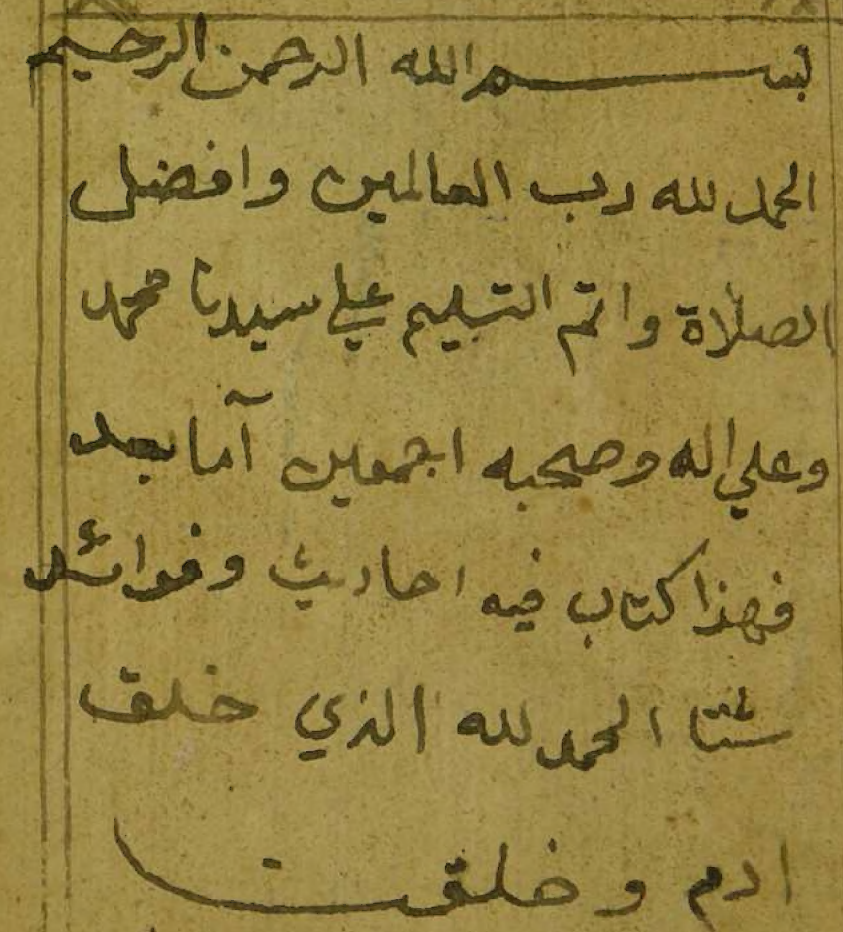 بسم الله الرحمن الرحيم
الحمد لله رب العالمين وافضل
الصلاة واتم التسليم علي سيدنا محمد
وعلي اله وصحبه اجمعين آما بعد
فهذا كتاب فيه احاديث وفوائد
شتا الحمد لله الذي خلق
ادم و خلقت